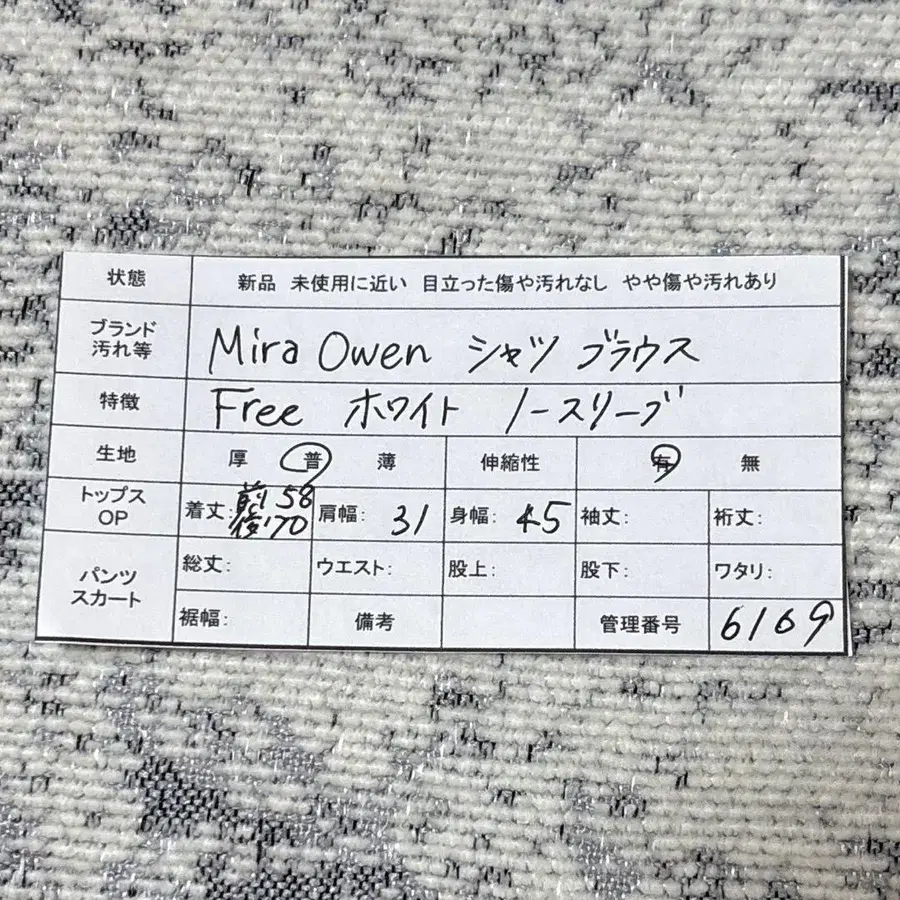 状態 新品 未使用に近い 目立った傷や汚れなし やや傷や汚れあり
ブランド
汚れ等 Mira Owen シャツ ブラウス
特徴 Free ホワイト ノースリーブ
生地 厚 普 薄 伸縮性 有 無
トップス
OP 着丈: 前 58
後 70 肩幅: 31 身幅: 45 袖丈: 裄丈:
パンツ
スカート 総丈: ウエスト: 股上: 股下: ワタリ:
裾幅: 備考 管理番号 6169